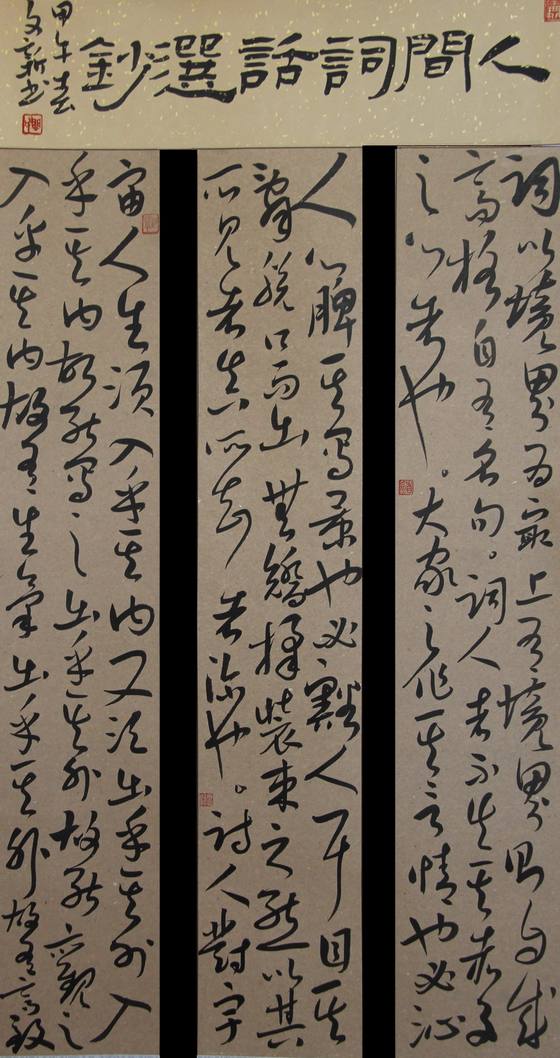 人間詞話選鈔
甲午春
文新书
詞以境界为最上有境界則自成
高格自有名句。詞人者不失其赤子
之心者也。大家之作其言情也必沁
人心脾其寫景也必豁人耳目其
辭脱口而出無矯揉裝束之態以其
所見者真所知者深也。詩人對宇
宙人生須入乎其内又須出乎其外入
乎其内故能寫之出乎其外故能觀之
入乎其内故有生氣出乎其外故有高致